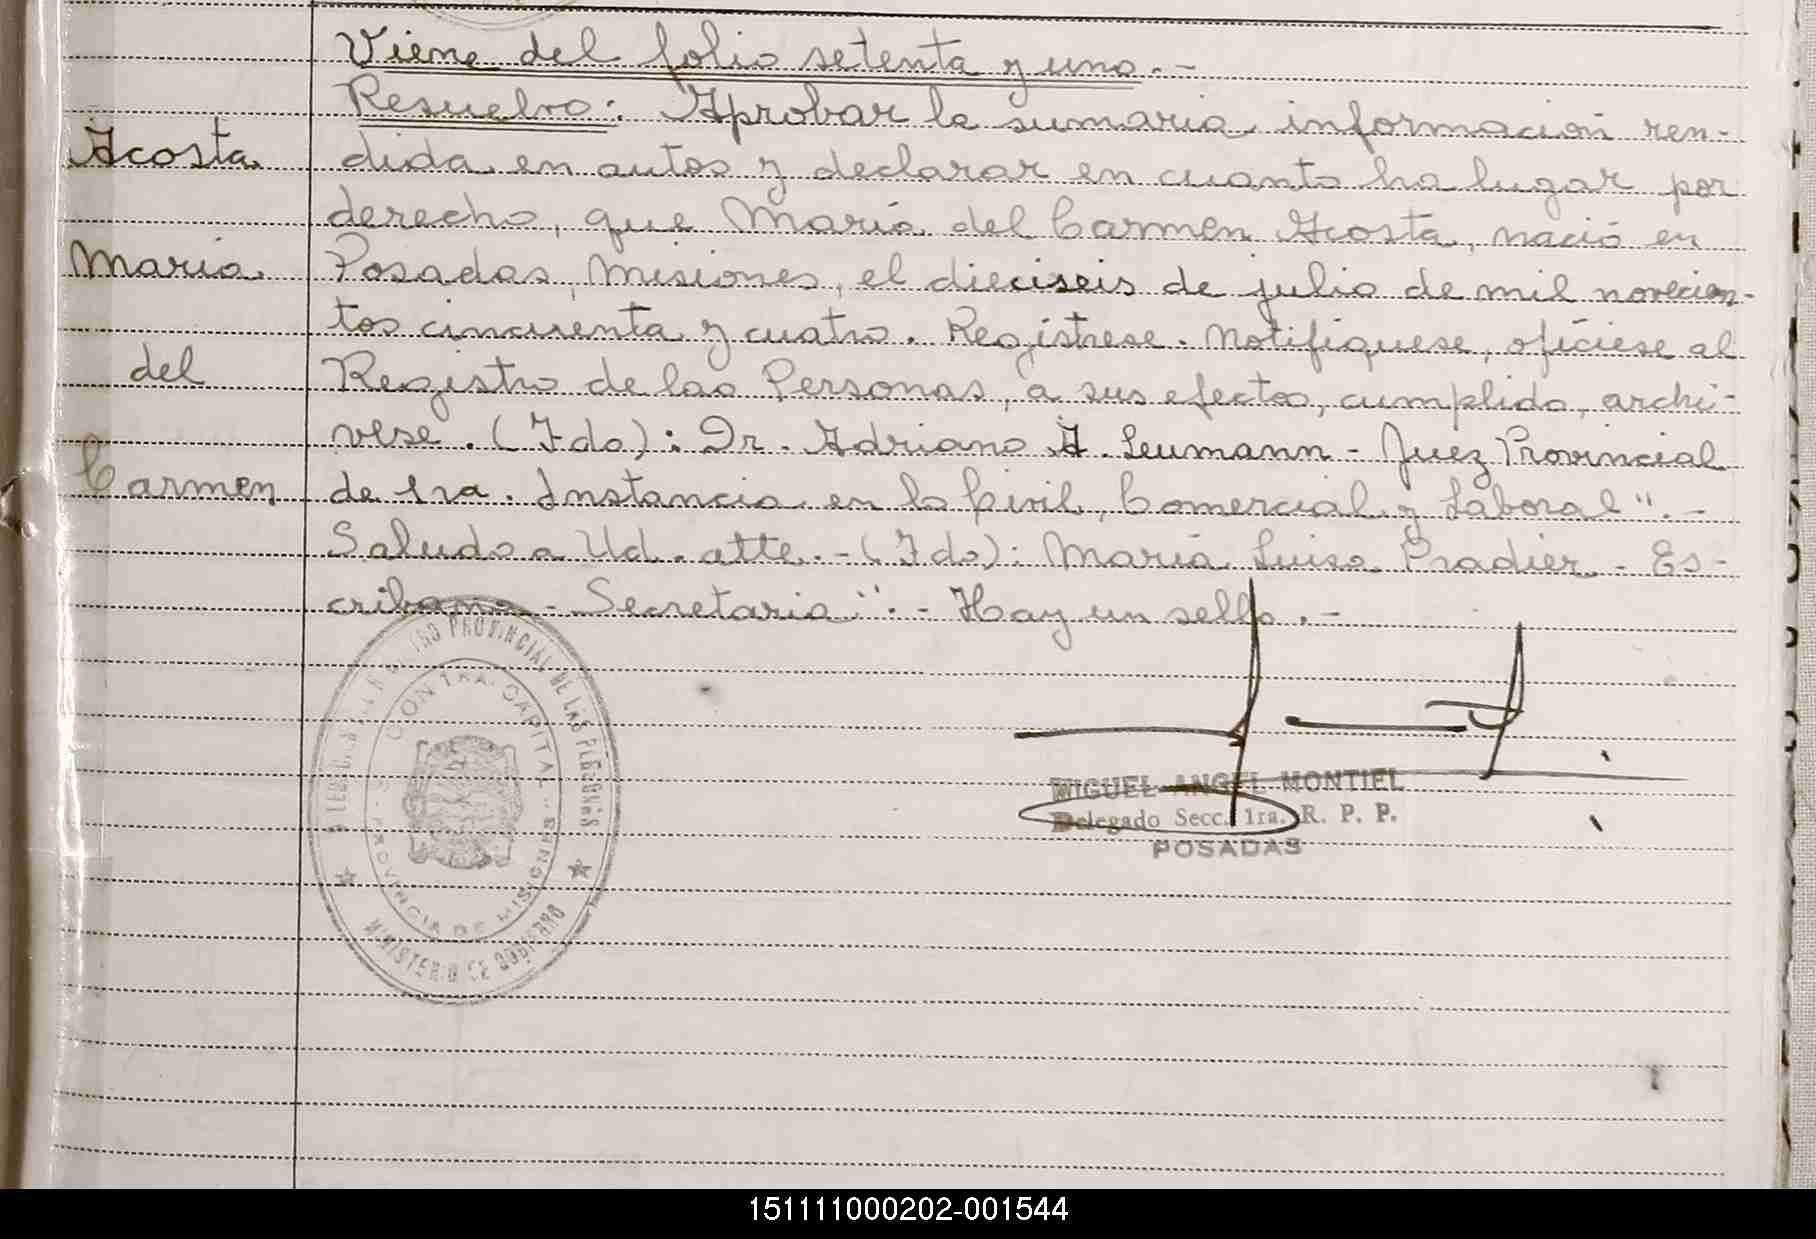 Viene del folio setenta y uno.-
Resuelvo: Aprobar la sumaria información ren-
Acosta
dida en autos y declarar en cuanto ha lugar por
derecho, que María del Carmen Acosta, nació en
María
Posadas, Misiones, el dieciseis de julio de mil novecien-
tos cincuenta y cuatro. Regístrese. Notifíquese, ofíciese al
del
Registro de las Personas, a sus efectos, cumplido, archí-
vese. (Fdo): Dr. Adriano A. Leumann - Juez Provincial
Carmen
de 1ra. Instancia en lo Civil, Comercial y Laboral".-
Saludo a Ud. atte.-(Fdo): María Luisa Pradier - Es-
cribana - Secretaria".- Hay un sello.-
PROVINCIAL DE LAS PERSONAS
CONTRA. CAPITAL
PROVINCIA DE MISIONES
MINISTERIO DE GOBIERNO
MIGUEL ANGEL MONTIEL
Delegado Secc. 1ra. R. P. P.
POSADAS
151111000202-001544